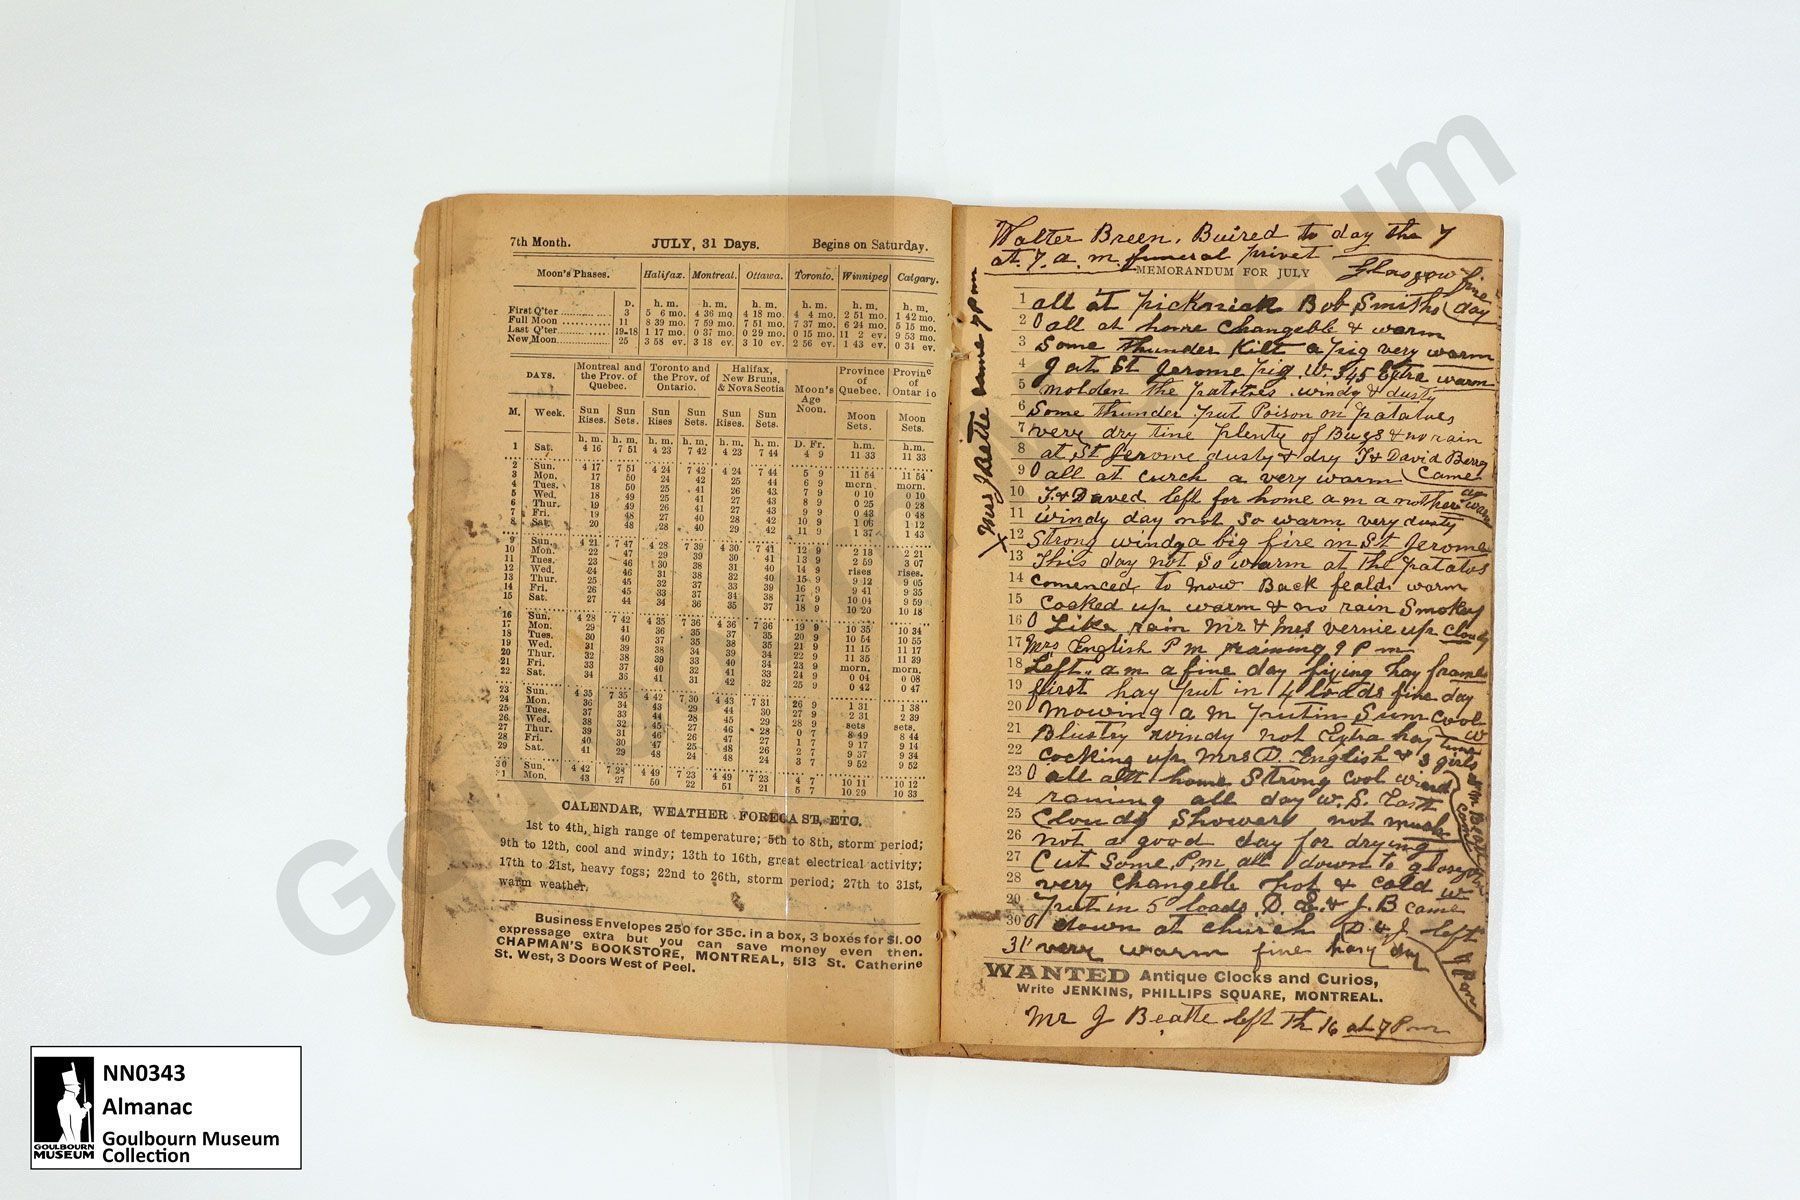 7th Month. JULY, 31 Days. Begins on Saturday.
Moon's Phases. Halifax. Montreal. Ottawa. Toronto. Winnipeg Calgary.
D. h. m. h. m. h. m. h. m. h. m. h. m.
First Q'ter 3 5 6 mo. 4 36 mo 4 18 mo. 4 4 mo. 2 51 mo. 1 42 mo.
Full Moon 11 8 39 mo. 7 59 mo. 7 51 mo. 7 37 mo. 6 24 mo. 5 15 mo.
Last Q'ter 19-18 1 17 mo. 0 37 mo. 0 29 mo. 0 15 mo. 11 2 ev. 9 53 mo.
New Moon 25 3 58 ev. 3 18 ev. 3 10 ev. 2 56 ev. 1 43 ev. 0 34 ev.
DAYS. Montreal and the Prov. of Quebec. Toronto and the Prov. of Ontario. Halifax, New Bruns. & Nova Scotia Moon's Age Noon. Province of Quebec. Provinc of Ontario
M. Week. Sun Rises. Sun Sets. Sun Rises Sun Sets. Sun Rises. Sun Sets. Moon Sets. Moon Sets.
h. m. h. m. h. m. h. m. h. m. h. m. D. Fr. h.m. h.m.
1 Sat. 4 16 7 51 4 23 7 42 4 23 7 44 4 9 11 33 11 33
2 Sun. 4 17 7 51 4 24 7 42 4 24 7 44 5 9 11 54 11 54
3 Mon. 17 50 24 42 25 44 6 9 morn. morn.
4 Tues. 18 50 25 41 26 43 7 9 0 10 0 10
5 Wed. 18 49 25 41 26 43 8 9 0 25 0 28
6 Thur. 19 49 26 41 27 43 9 9 0 43 0 48
7 Fri. 19 48 27 40 28 42 10 9 1 06 1 12
8 Sat. 20 48 28 40 29 42 11 9 1 37 1 43
9 Sun. 4 21 7 47 4 28 7 39 4 30 7 41 12 9 2 13 2 21
10 Mon. 22 47 29 39 30 41 13 9 2 59 3 07
11 Tues. 23 46 30 38 31 40 14 9 rises rises.
12 Wed. 24 46 31 38 32 40 15 9 9 12 9 05
13 Thur. 25 45 32 37 33 39 16 9 9 41 9 35
14 Fri. 26 45 33 37 34 38 17 9 10 04 9 59
15 Sat. 27 44 34 36 35 37 18 9 10 20 10 18
16 Sun. 4 28 7 42 4 35 7 36 4 36 7 36 19 9 10 35 10 34
17 Mon. 29 41 36 35 37 35 20 9 10 54 10 55
18 Tues. 30 40 37 35 38 35 21 9 11 15 11 17
19 Wed. 31 39 38 34 39 34 22 9 11 35 11 39
20 Thur. 32 38 39 33 40 34 23 9 morn. morn.
21 Fri. 33 37 40 32 41 33 24 9 0 04 0 08
22 Sat. 34 36 41 31 42 32 25 9 0 42 0 47
23 Sun. 4 35 7 35 4 42 7 30 4 43 7 31 26 9 1 31 1 38
24 Mon. 36 34 43 29 44 30 27 9 2 31 2 39
25 Tues. 37 33 44 28 45 29 28 9 sets sets.
26 Wed. 38 32 45 27 46 28 0 7 8 49 8 44
27 Thur. 39 31 46 26 47 27 1 7 9 17 9 14
28 Fri. 40 30 47 25 48 26 2 7 9 37 9 34
29 Sat. 41 29 48 24 48 24 3 7 9 52 9 52
30 Sun. 4 42 7 28 4 49 7 23 4 49 7 23 4 7 10 11 10 12
31 Mon. 43 27 50 22 51 21 5 7 10 29 10 33
CALENDAR, WEATHER FORECAST, ETC.
1st to 4th, high range of temperature; 5th to 8th, storm period;
9th to 12th, cool and windy; 13th to 16th, great electrical activity;
17th to 21st, heavy fogs; 22nd to 26th, storm period; 27th to 31st,
warm weather.
Business Envelopes 250 for 35c. in a box, 3 boxes for $1.00
expressage extra but you can save money even then.
CHAPMAN'S BOOKSTORE, MONTREAL, 513 St. Catherine
St. West, 3 Doors West of Peel.
Walter Breen. Buired to day the 7
at 7. a. m. funeral privet
MEMORANDUM FOR JULY
Glasgow fine
1 all at picknick Bob Smiths day
2 0 all at home changeble & warm
3 Some thunder Kilt a pig very warm
4 J at St Jerome pig. w. 345 Extra warm
5 molden the patotoes. windy & dusty
6 Some thunder. put Poison on patatoes
7 very dry time plenty of Bugs & no rain
8 at St Jerome dusty & dry T & David Barry
Came
9 0 all at curch a very warm
10 T. & David left for home a m a nother
11 windy day not so warm very dusty
12 Strong wind & a big fire in St Jerome
13 This day not So warm at the patatos
14 comenced to mow Back feald warm
15 Cocked up warm & no rain Smokey
16 0 Like rain Mr & Mrs vernie up cloudy
17 Mrs English P m raining 9 P m
18 Left. a m a fine day fixing hay frames
19 first hay put in 4 lodds fine day
20 mowing a m put in Sum cool
21 Blustry windy not Extra hay time
22 cocking up Mrs D. English & 3 girls
23 0 all att home Strong cool wind
24 raining all day w. S. East
25 Cloudy Showers not much
26 not a good day for drying
27 Cut Some P.m all down to glasgow
28 very changeble hot & cold w
29 put in 5 loads. D. E. & J. B came
30 0 down at church D & J left
9 P m
31 very warm fine hay day
WANTED Antique Clocks and Curios,
Write JENKINS, PHILLIPS SQUARE, MONTREAL.
Mr J Beatte left Th 16 at 7 P m
X Mrs J Beatte came 7 P m
Goulbourn Museum
NN0343
Almanac
Goulbourn Museum
Collection
GOULBOURN
MUSEUM